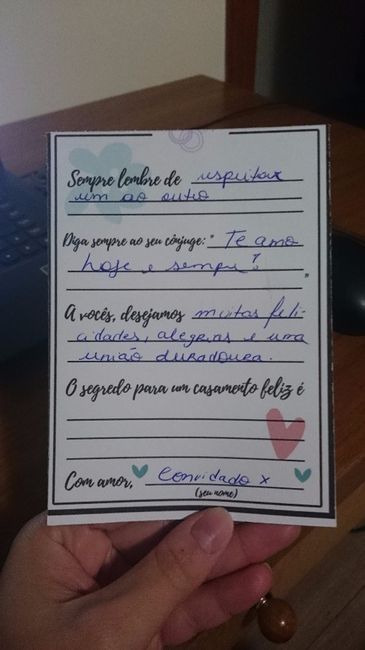 Sempre lembre de respeitar
um ao outro
Diga sempre ao seu cônjuge: " Te amo
hoje e sempre!
"
A vocês, desejamos muitas feli-
cidades, alegrias e uma
união duradoura.
O segredo para um casamento feliz é
Com amor, Convidado x
(seu nome)